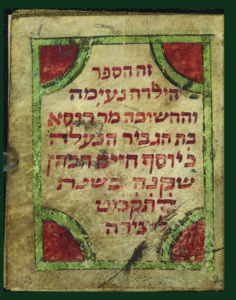 זה הספר
הילדה נעימה
והחשובה מרת
בת הגביר הנעלה
כ׳ יוסף חיים הכהן
שקנה בשנת
התקמט
ליצירה